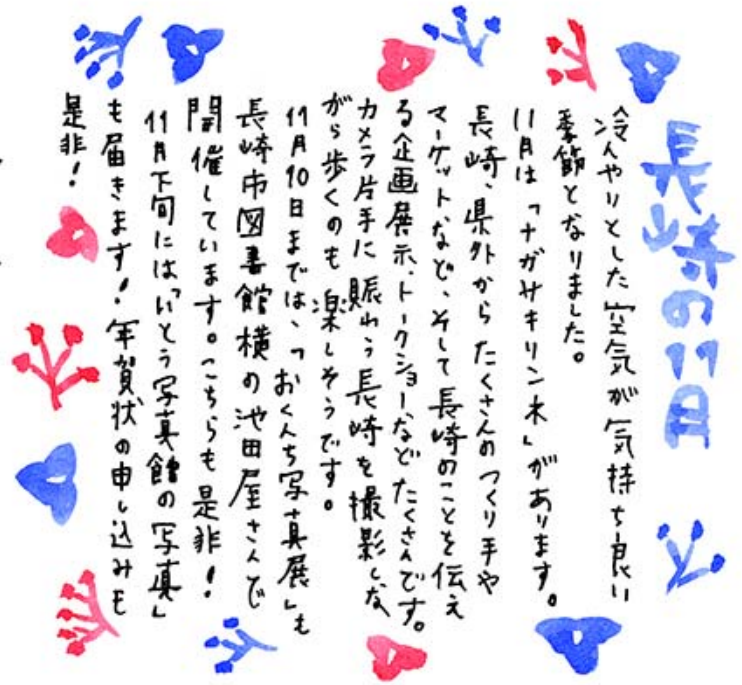 長崎の11月
冷んやりとした空気が気持ち良い
季節となりました。
11月は「ナガサキリンネ」があります。
長崎、県外からたくさんのつくり手や
マーケットなど、そして長崎のことを伝え
る企画展示、トークショーなどたくさんです。
カメラ片手に賑わう長崎を撮影しな
がら歩くのも楽しそうです。
11月10日までは、「おくんち写真展」も
長崎市図書館横の池田屋さんで
開催しています。こちらも是非!
11月下旬には「いとう写真館の写真」
も届きます!年賀状の申し込みも
是非!